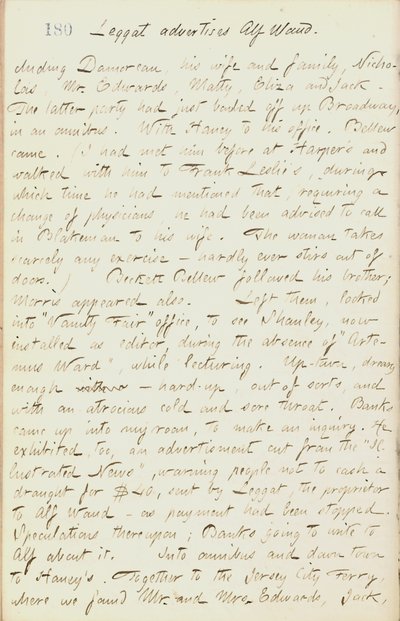 180
Leggat advertises Alf Waud.
cluding Damoreau, his wife and family, Nicho-
las, Mr. Edwards, Matty, Eliza and Jack.
The latter party had just boiled off up Broadway,
in an omnibus. With Haney to his office. Bellew
came. (I had met him before at Harper's and
walked with him to Frank Leslie's, during
which time he had mentioned that, requiring a
change of physicians, he had been advised to call
in Blakeman to his wife. The woman takes
scarcely any exercise — hardly ever stirs out of
doors.) Beckett Bellew followed his brother;
Morris appeared also. Left them, looked
into "Vanity Fair" office, to see Shanley, now
installed as editor, during the absence of "Arte-
mus Ward", while lecturing. Up-town, dreary
enough — hard-up, out of sorts, and
with an atrocious cold and sore throat. Banks
came up into my room, to make an inquiry. He
exhibited, too, an advertisment cut from the "Il-
lustrated News", warning people not to cash a
draught for $40, sent by Leggat, the proprietor
to Alf Waud — as payment had been stopped.
Speculations thereupon; Banks going to write to
Alf about it. Into omnibus and down town
to Haney's. Together to the Jersey City Ferry,
where we found Mr. and Mrs. Edwards, Jack,